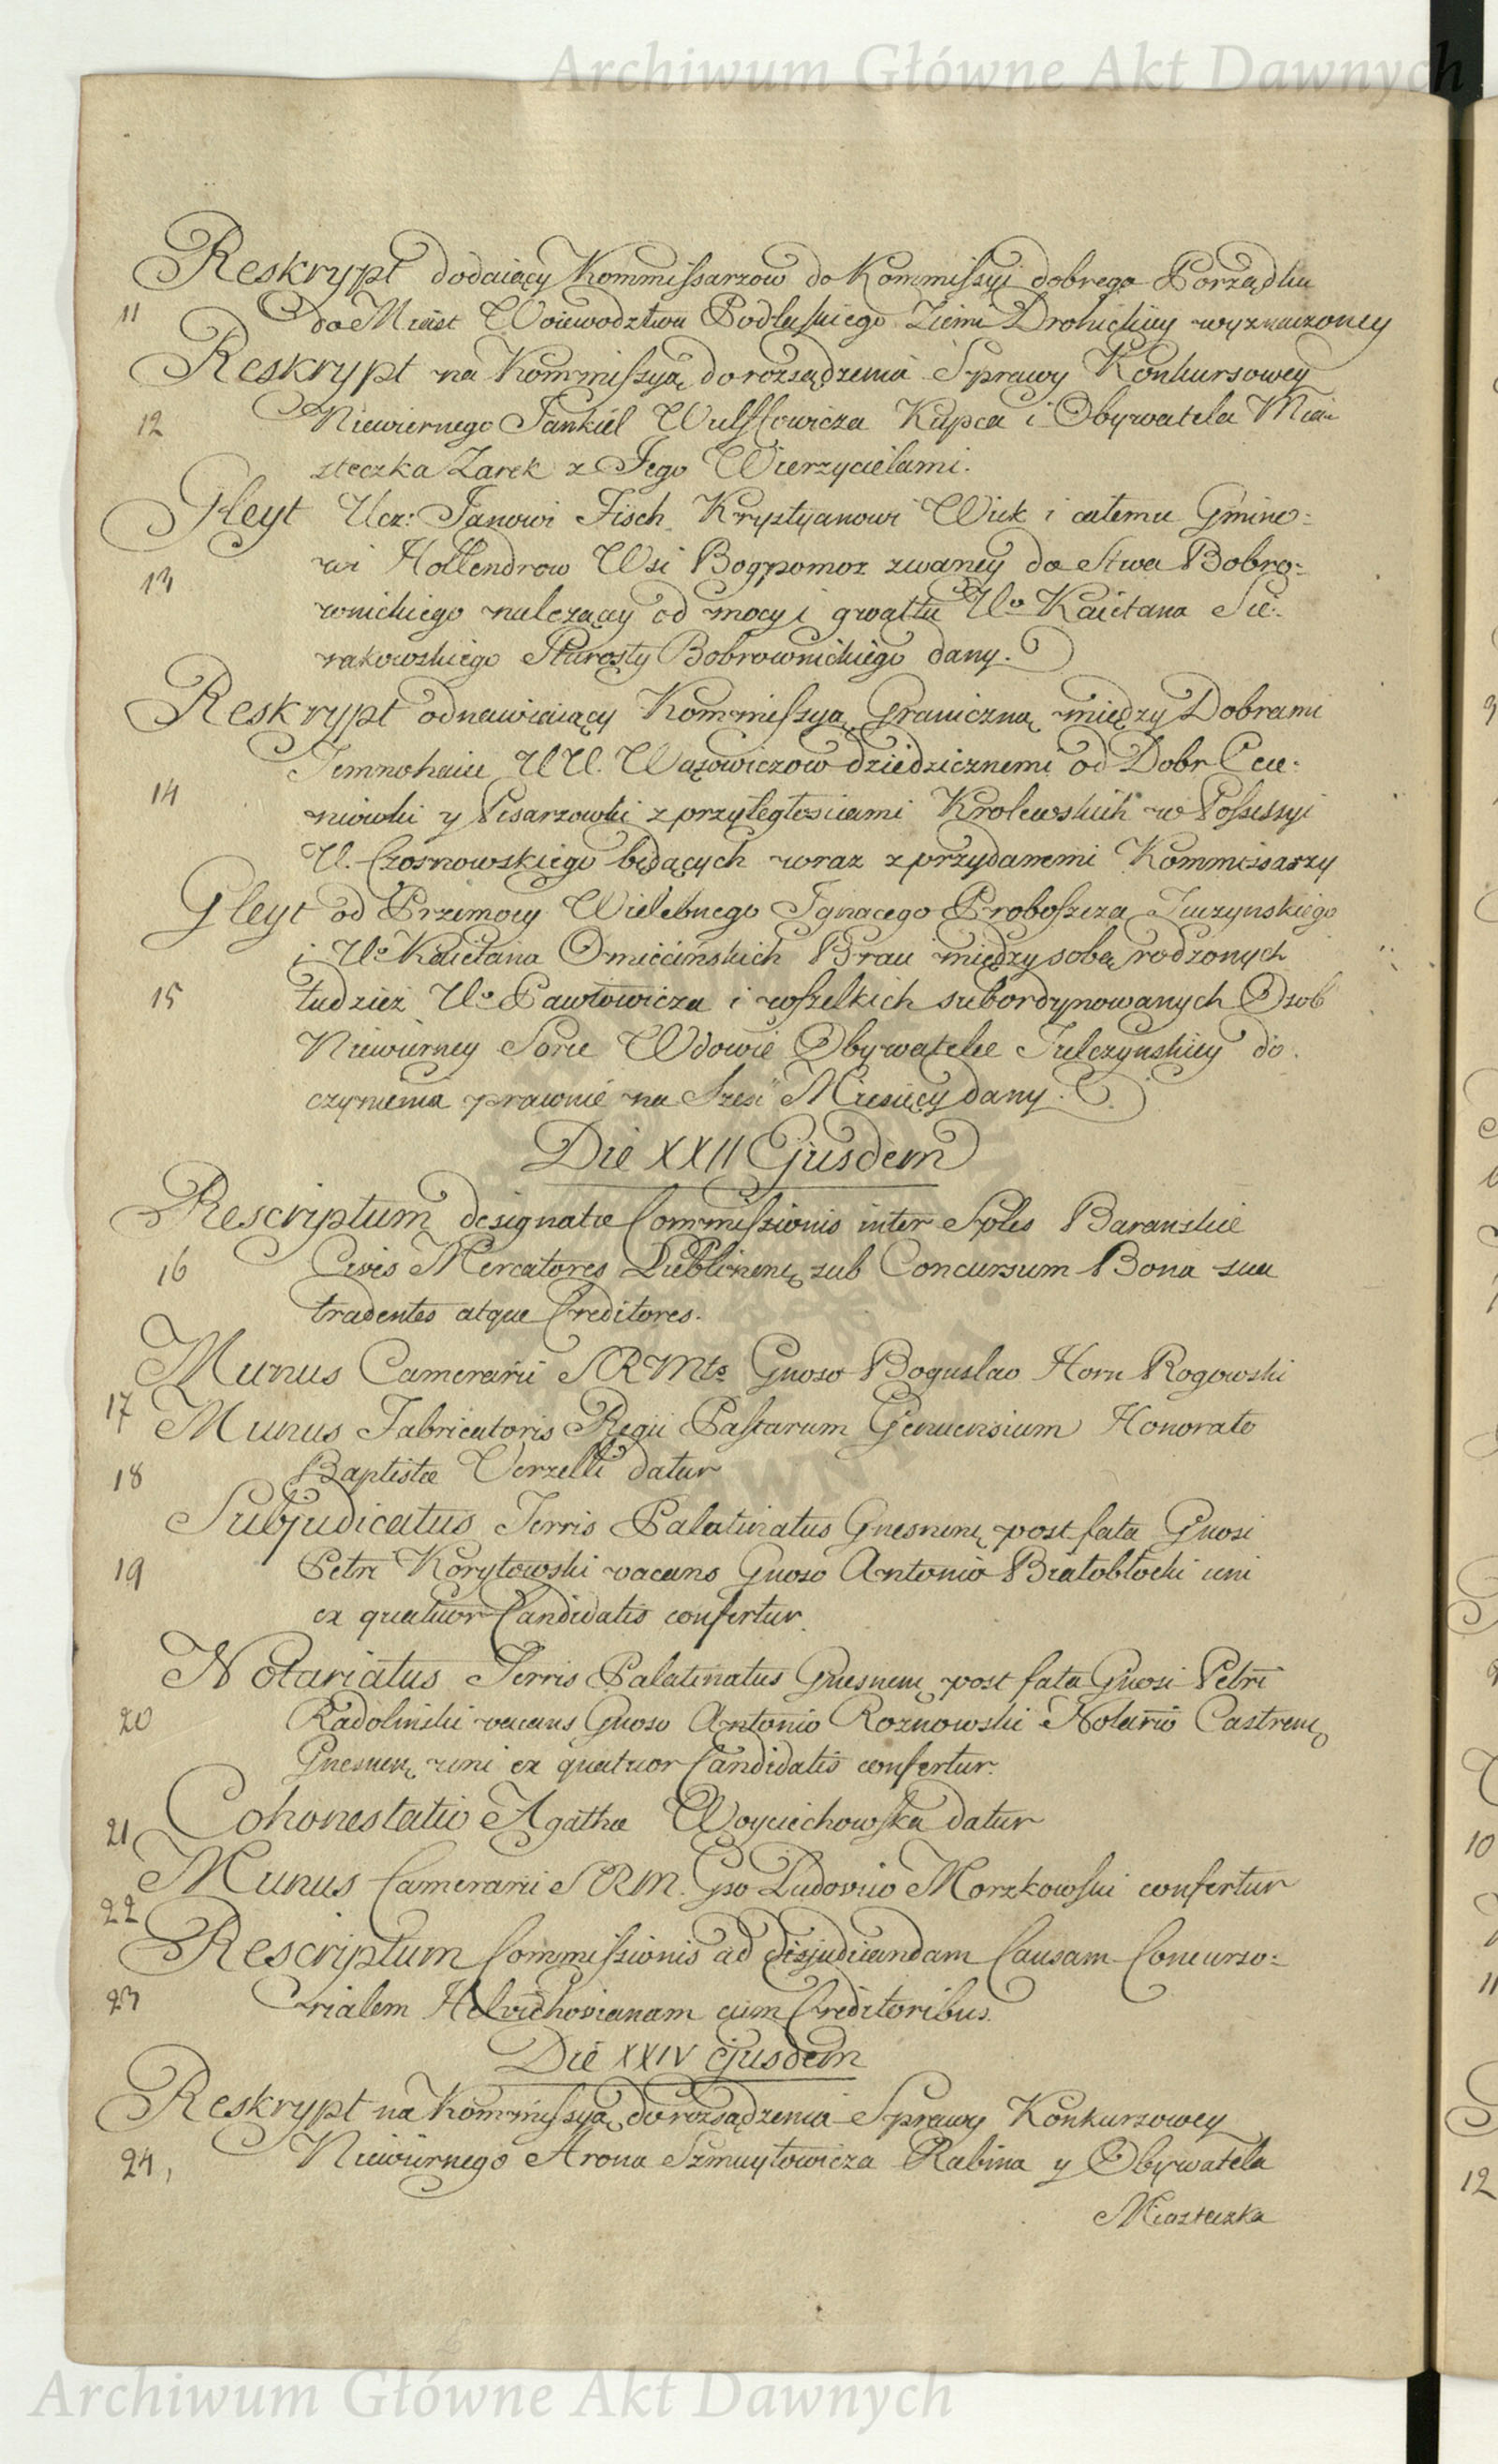 Archiwum Główne Akt Dawnych
Reskrypt dodaiący Kommissarzow do Kommissyi dobrego Porządku
11 do Miast Woiewodztwa Podlaskiego Ziemi Drohickiey wyznaczoney
Reskrypt na Kommissyą do rozsądzenia Sprawy Konkursowey
12 Niewiernego Jankiel Wulffowicza Kupca i Obywatela Mia-
steczka Zarek z Jego Wierzycielami.
Gleyt Ucz: Janowi Fisch Krystyanowi Wick i całemu Gmino=
wi Hollendrow Wsi Bogpomoz zwaney do Stwa Bobro=
13 wnickiego należący od mocy i gwałtu Uo Kaietana Sie:
rakowskiego Starosty Bobrownickiego dany.
Reskrypt odnawiaiący Kommissyą Graniczną między Dobrami
Temnohaice UU. Wąsowiczow dziedzicznemi od Dobr
14 y Pisarzowki z przyległosciami Krolewskich w Possessyi
U. Czosnowskiego będących wraz z przydanemi Kommissarzy
Gleyt od Przemocy Wielebnego Ignacego Proboszcza Tuczynskiego
i Uo Kaietana Omiecińskich Braci między sobą rodzonych
15 tudzież Uo Pawłowicza i wszelkich subordynowanych Osob
Niewierney Sorie Wdowie Obywatelce Tulczynskiey do
czynienia prawnie na Szesć Miesięcy dany.
Die XXII Ejusdem
Rescriptum designatae Commissionis inter Sptes Baranskie
16 Cives Mercatores Lublinenę sub Concursum Bona sua
tradentes atque Creditores.
Munus Camerarii SRMts Gnoso Boguslao Horn Rogowski
17
Munus Fabricatoris Regii Pastarum Genuensium Honorato
18 Baptistae Verzelli datur
Subjudicatus Terris Palatinatus Gnesnenę post fata Gnosi
19 Petri Korytowski vacans Gnoso Antonio Białobłocki uni
ex quatuor Candidatis confertur.
Notariatus Terris Palatinatus Gnesnenę post fata Gnosi Petri
20 Radolinski vacans Gnoso Antonio Roznowski Notario Castrenę
Gnesnenę uni ex quatuor Candidatis confertur.
21 Cohonestatio Agathae Woyciechowska datur
Munus Camerarii SRM. Gso Ludovico Morzkowski confertur
22
Rescriptum Commissionis ad disjudicandam Causam Concurso=
23 rialem Helvichovianam cum Creditoribus.
Die XXIV ejusdem
Reskrypt na Kommissyą do rozsądzenia Sprawy Konkursowey
24, Niewiernego Arona Szmuyłowicza Rabina y Obywatela
Miasteczka
10
11
12
Archiwum Główne Akt Dawnych